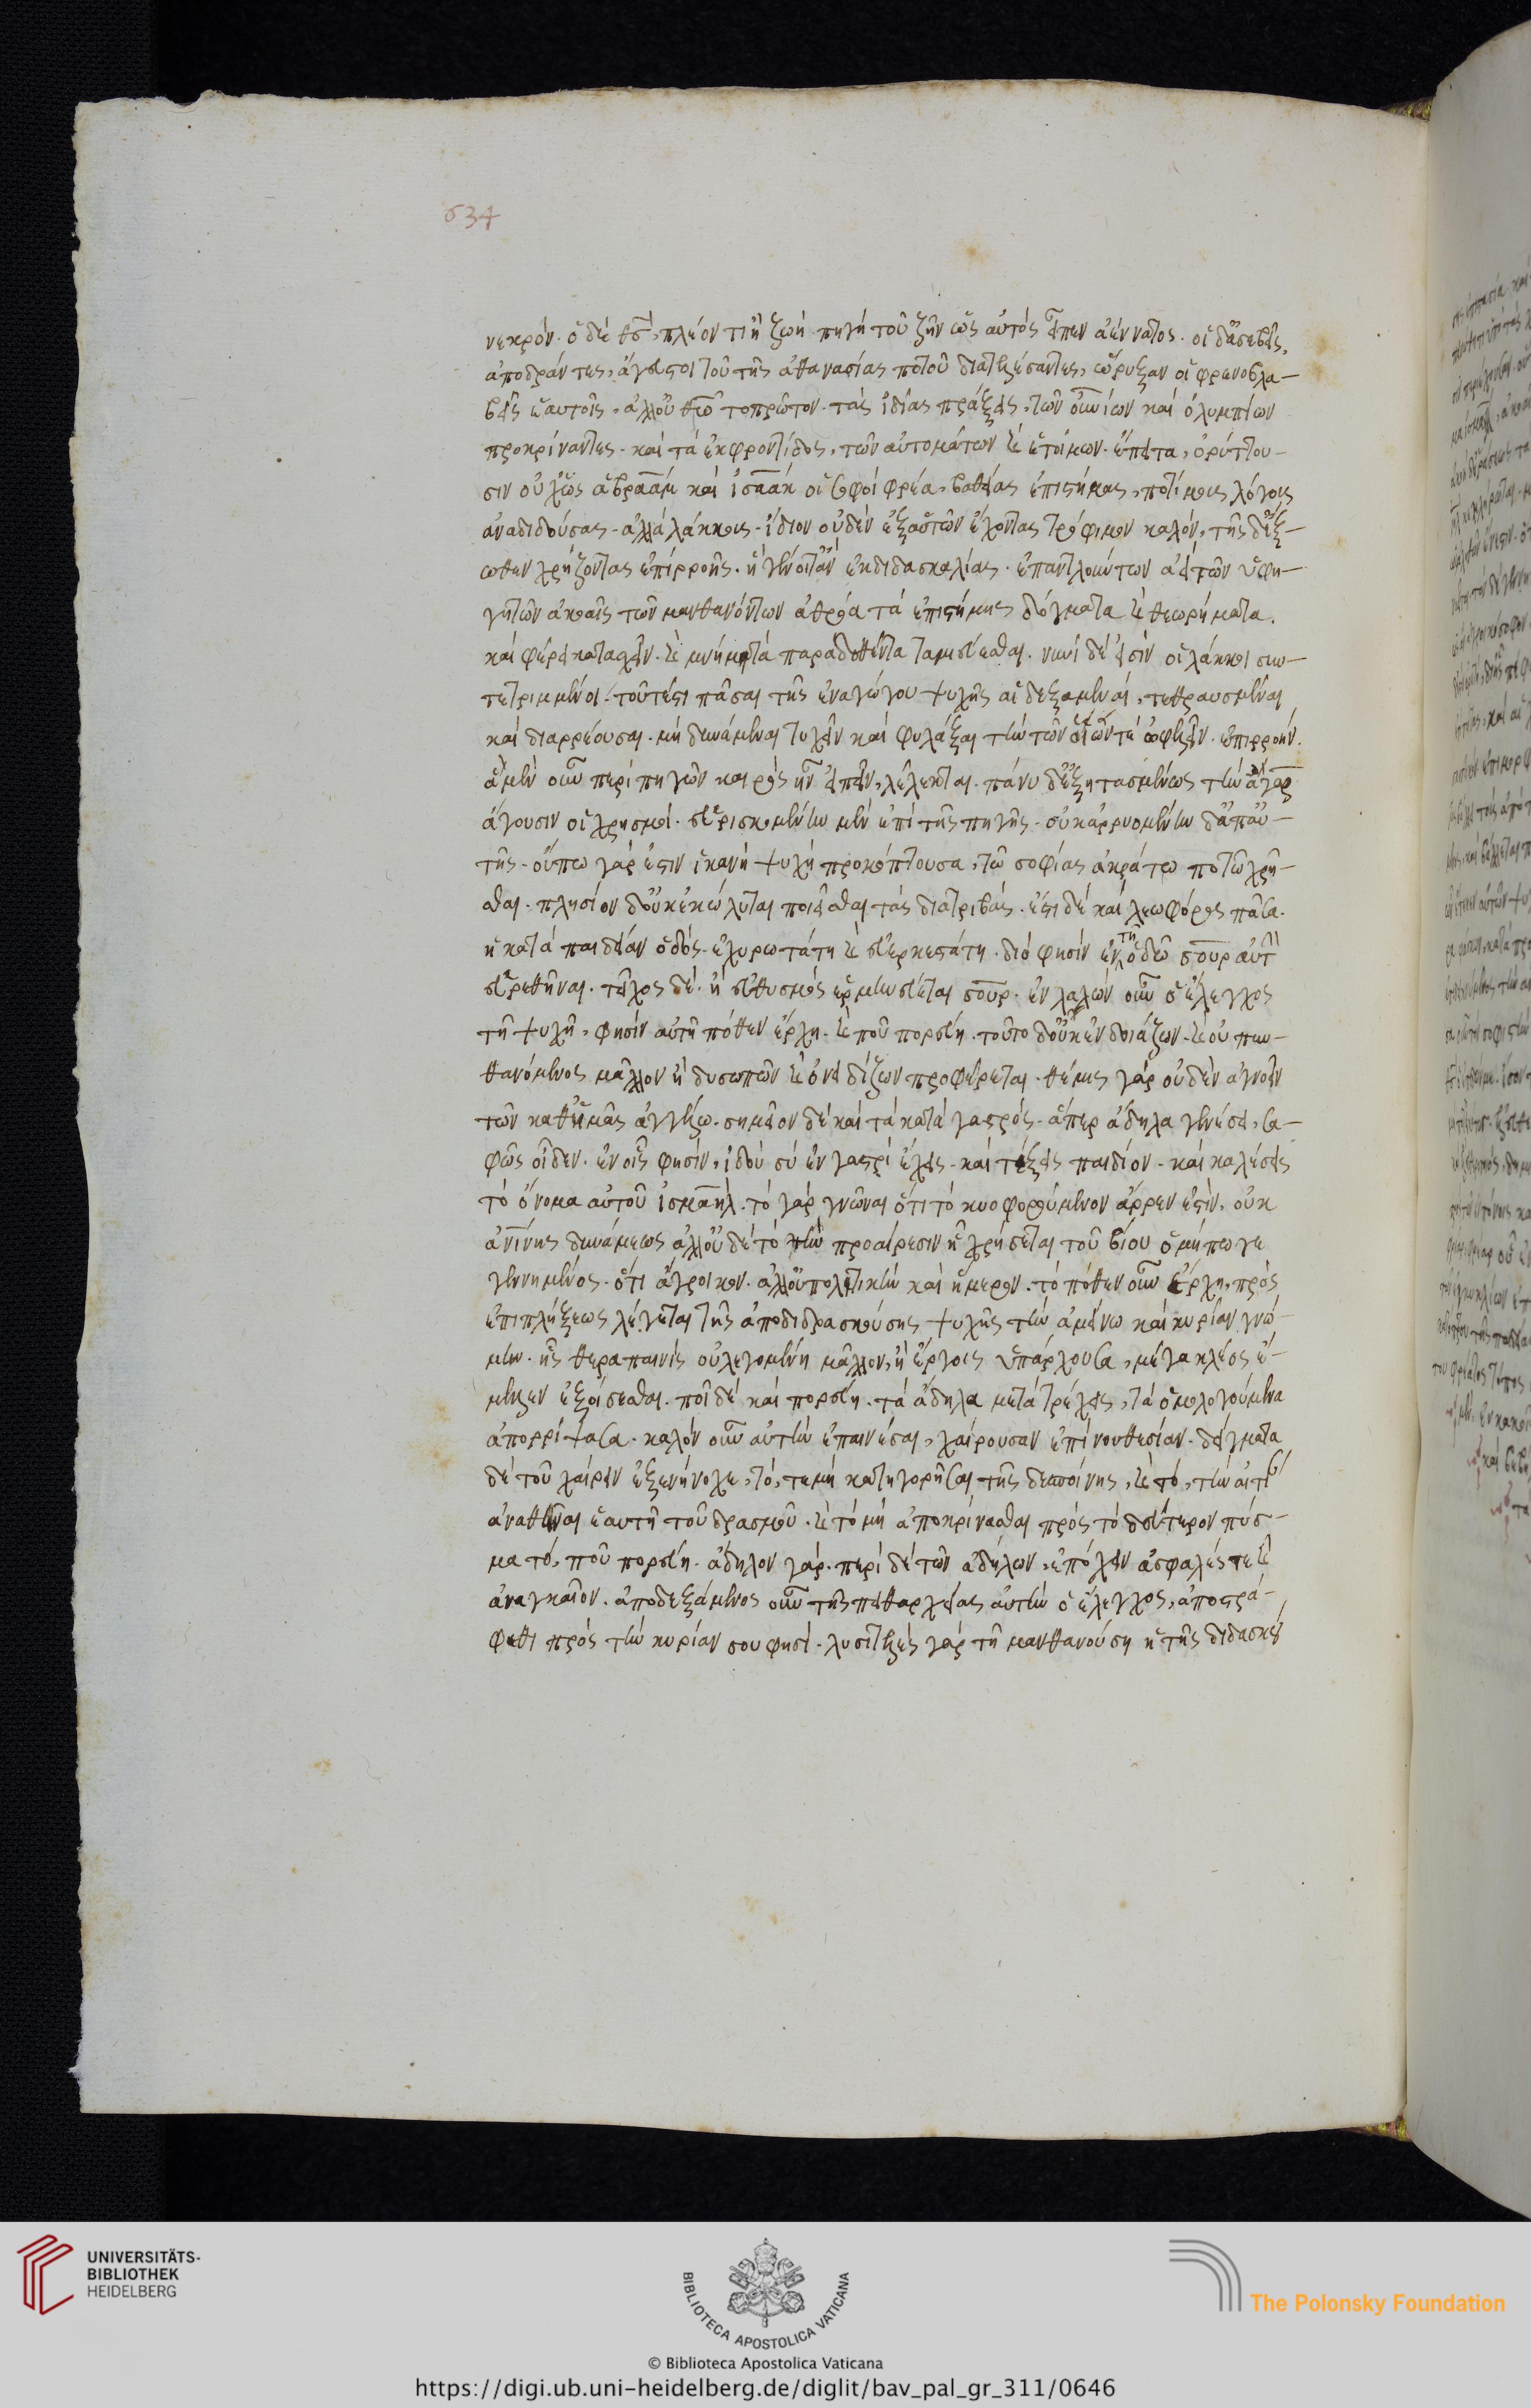 634
νεκρόν· ὁ δὲ θς̄, πλέον τι ἢ ζωή· πηγὴ τοῦ ζῆν ὡς αὐτὸς εἶπεν ἀένναος· οἱ δ' ἀσεβεῖς,
ἀποδράντες, ἄγευστοι τοῦ τῆς ἀθανασίας ποτοῦ διατελέσαντες, ὤρυξαν οἱ φρενοβλα-
βεῖς ἑαυτοῖς, ἀλλ' οὐ θῶ τοπρῶτον· τὰς ἰδίας πράξεις, τῶν οὐνίων καὶ ὀλυμπίων
προκρίναντες· καὶ τὰ ἐκφροντίδος, τῶν αὐτομάτων κὲ ἑτοίμων· ἔπειτα, ὀρύττου-
σιν οὐχὡς ἀβραὰμ καὶ ἰσαὰκ οἱ σοφοὶ φρέα, βαθείας ἐπιστήμας, ποτίμους λόγους
ἀναδιδούσας· ἀλλὰ λάκκους· ἴδιον οὐδὲν ἐξ ἑαυτῶν ἔχοντας τρόφιμον καλόν, τῆς δ' ἔξ-
ωθεν χρῄζοντας ἐπιρροῆς· ἣ γένοιτ' ἂν ἐκδιδασκαλίας· ἐπαντλούντων ἀεὶ τῶν ὑφη-
γητῶν ἀκοαῖς τῶν μανθανόντων ἀθρόα τὰ ἐπιστήμης δόγματα κὲ θεωρήματα.
καὶ φέρει καταχεῖν· κὲ μνήμῃ τὰ παραδοθέντα ταμιεύεσθαι· νυνὶ δέ εἰσιν οἱ λάκκοι συν-
τετριμμένοι· τουτέστι πᾶσαι τῆς ἀναγώγου ψυχῆς αἱ δεξαμεναὶ, τεθραυσμέναι
καὶ διαρρέουσαι· μὴ δυνάμεναι τυχεῖν καὶ φυλάξαι τὴν τῶν οἵων τε ὠφελεῖν· ἐπιρροήν.
ἃ μὲν οὖν περὶ πηγῶν καιρὸς ἦν εἰπεῖν, λέλεκται· πάνυ δ' ἐξητασμένως τὴν ἄγαρ
ἄγουσιν οἱ χρησμοί· εὑρισκομένην μὲν ἐπὶ τῆς πηγῆς· οὐκ ἀρρυομένην δ' ἀπ' αὐ-
τῆς· οὔπω γάρ ἐστιν ἱκανὴ ψυχὴ προκόπτουσα, τῶ σοφίας ἀκράτω ποτῶ χρῆ-
σθαι· πλησίον δ' οὐκ ἐκώλυται ποιεῖσθαι τὰς διατριβάς· ἔστι δὲ καὶ λεωφόρος πᾶσα·
ἡ κατὰ παιδείαν ὁδός· ἐχυρωτάτη κὲ εὐερκεστάτη· διό φησὶν ἐν τῆ ὁδῶ σοὺρ αὐτὴν
εὑρεθῆναι· τεῖχος δὲ ἢ εὐθυσμὸς ἑρμηνεύεται σούρ· ἐν λαλῶν οὖν ὁ ἔλεγχος
τῆ ψυχῆ, φησὶν αὐτῆ πόθεν ἔρχῃ· κὲ ποῦ πορεύῃ· τοῦτο δ' οὐκ ἐνδοιάζων· κὲ οὐ πυν-
θανόμενος μᾶλλον ἢ δυσωπῶν κὲ ὀνειδίζων προφέρεται· θέμις γὰρ οὐδὲν ἀγνοεῖν
τῶν καθ' ἡμᾶς ἀγγέλω· σημεῖον δὲ καὶ τὰ κατὰ γαστρός· ἅπερ ἄδηλα γενέσει, σα-
φῶς οἶδεν· ἐν οἷς φησὶν, ἰδοὺ σὺ ἐν γαστρὶ ἔχεις· καὶ τέξεις παιδίον· καὶ καλέσεις
τὸ ὄνομα αὐτοῦ ἰσμαήλ· τὸ γὰρ γνῶναι ὅτι τὸ κυοφορούμενον ἄρρεν ἐστὶν, οὐκ
ἀνίνης δυνάμεως ἀλλ' οὐδὲ τὸ τὴν προαίρεσιν ᾗ χρήσεται τοῦ βίου ὁ μήπω γε
γεννημένος· ὅτι ἄγροικον· ἀλλ' οὐ πολιτικὴν καὶ ἥμερον· τὸ πόθεν οὖν ἔρχῃ, πρὸς
ἐπιπλήξεως λέγεται τῆς ἀποδιδρασκούσης ψυχῆς τὴν ἀμείνω καὶ κυρίαν γνώ-
μην· ἧς θεραπαινὶς οὐ λεγομένη μᾶλλον, ἢ ἔργοις ὑπάρχουσα, μέγα κλέος ἔ-
μελλεν ἐξοίσεσθαι· ποῖ δὲ καὶ πορεύῃ· τὰ ἄδηλα μετατρέχεις, τὰ ὁμολογούμενα
ἀπορρίψασα· καλὸν οὖν αὐτὴν ἐπαινέσαι, χαίρουσαν ἐπὶ νουθεσίαν· δείγματα
δὲ τοῦ χαίρειν ἐξενήνοχε, τό, τε μὴ κατηγορῆσαι τῆς δεσποίνης, κὲ τὸ, τὴν αἰτί
ἀναθεῖναι ἑαυτῆ τοῦ δρασμοῦ· κὲ τὸ μὴ ἀποκρίνασθαι πρὸς τὸ δεύτερον πύσ-
μα τὸ, ποῦ πορεύῃ· ἄδηλον γάρ· περὶ δὲ τῶν ἀδήλων, ἐπέχειν ἀσφαλές τε κὲ
ἀναγκαῖον· ἀποδεξάμενος οὖν τῆς πειθαρχείας αὐτὴν ὁ ἔλεγχος, ἀποστρά-
φηθι πρὸς τὴν κυρίαν σου φησί· λυσιτελὲς γὰρ τῆ μανθανούσῃ ἡ τῆς διδασκού
UNIVERSITÄTS-
BIBLIOTHEK
HEIDELBERG
BIBLIOTECA APOSTOLICA VATICANA
The Polonsky Foundation
© Biblioteca Apostolica Vaticana
https://digi.ub.uni-heidelberg.de/diglit/bav_pal_gr_311/0646